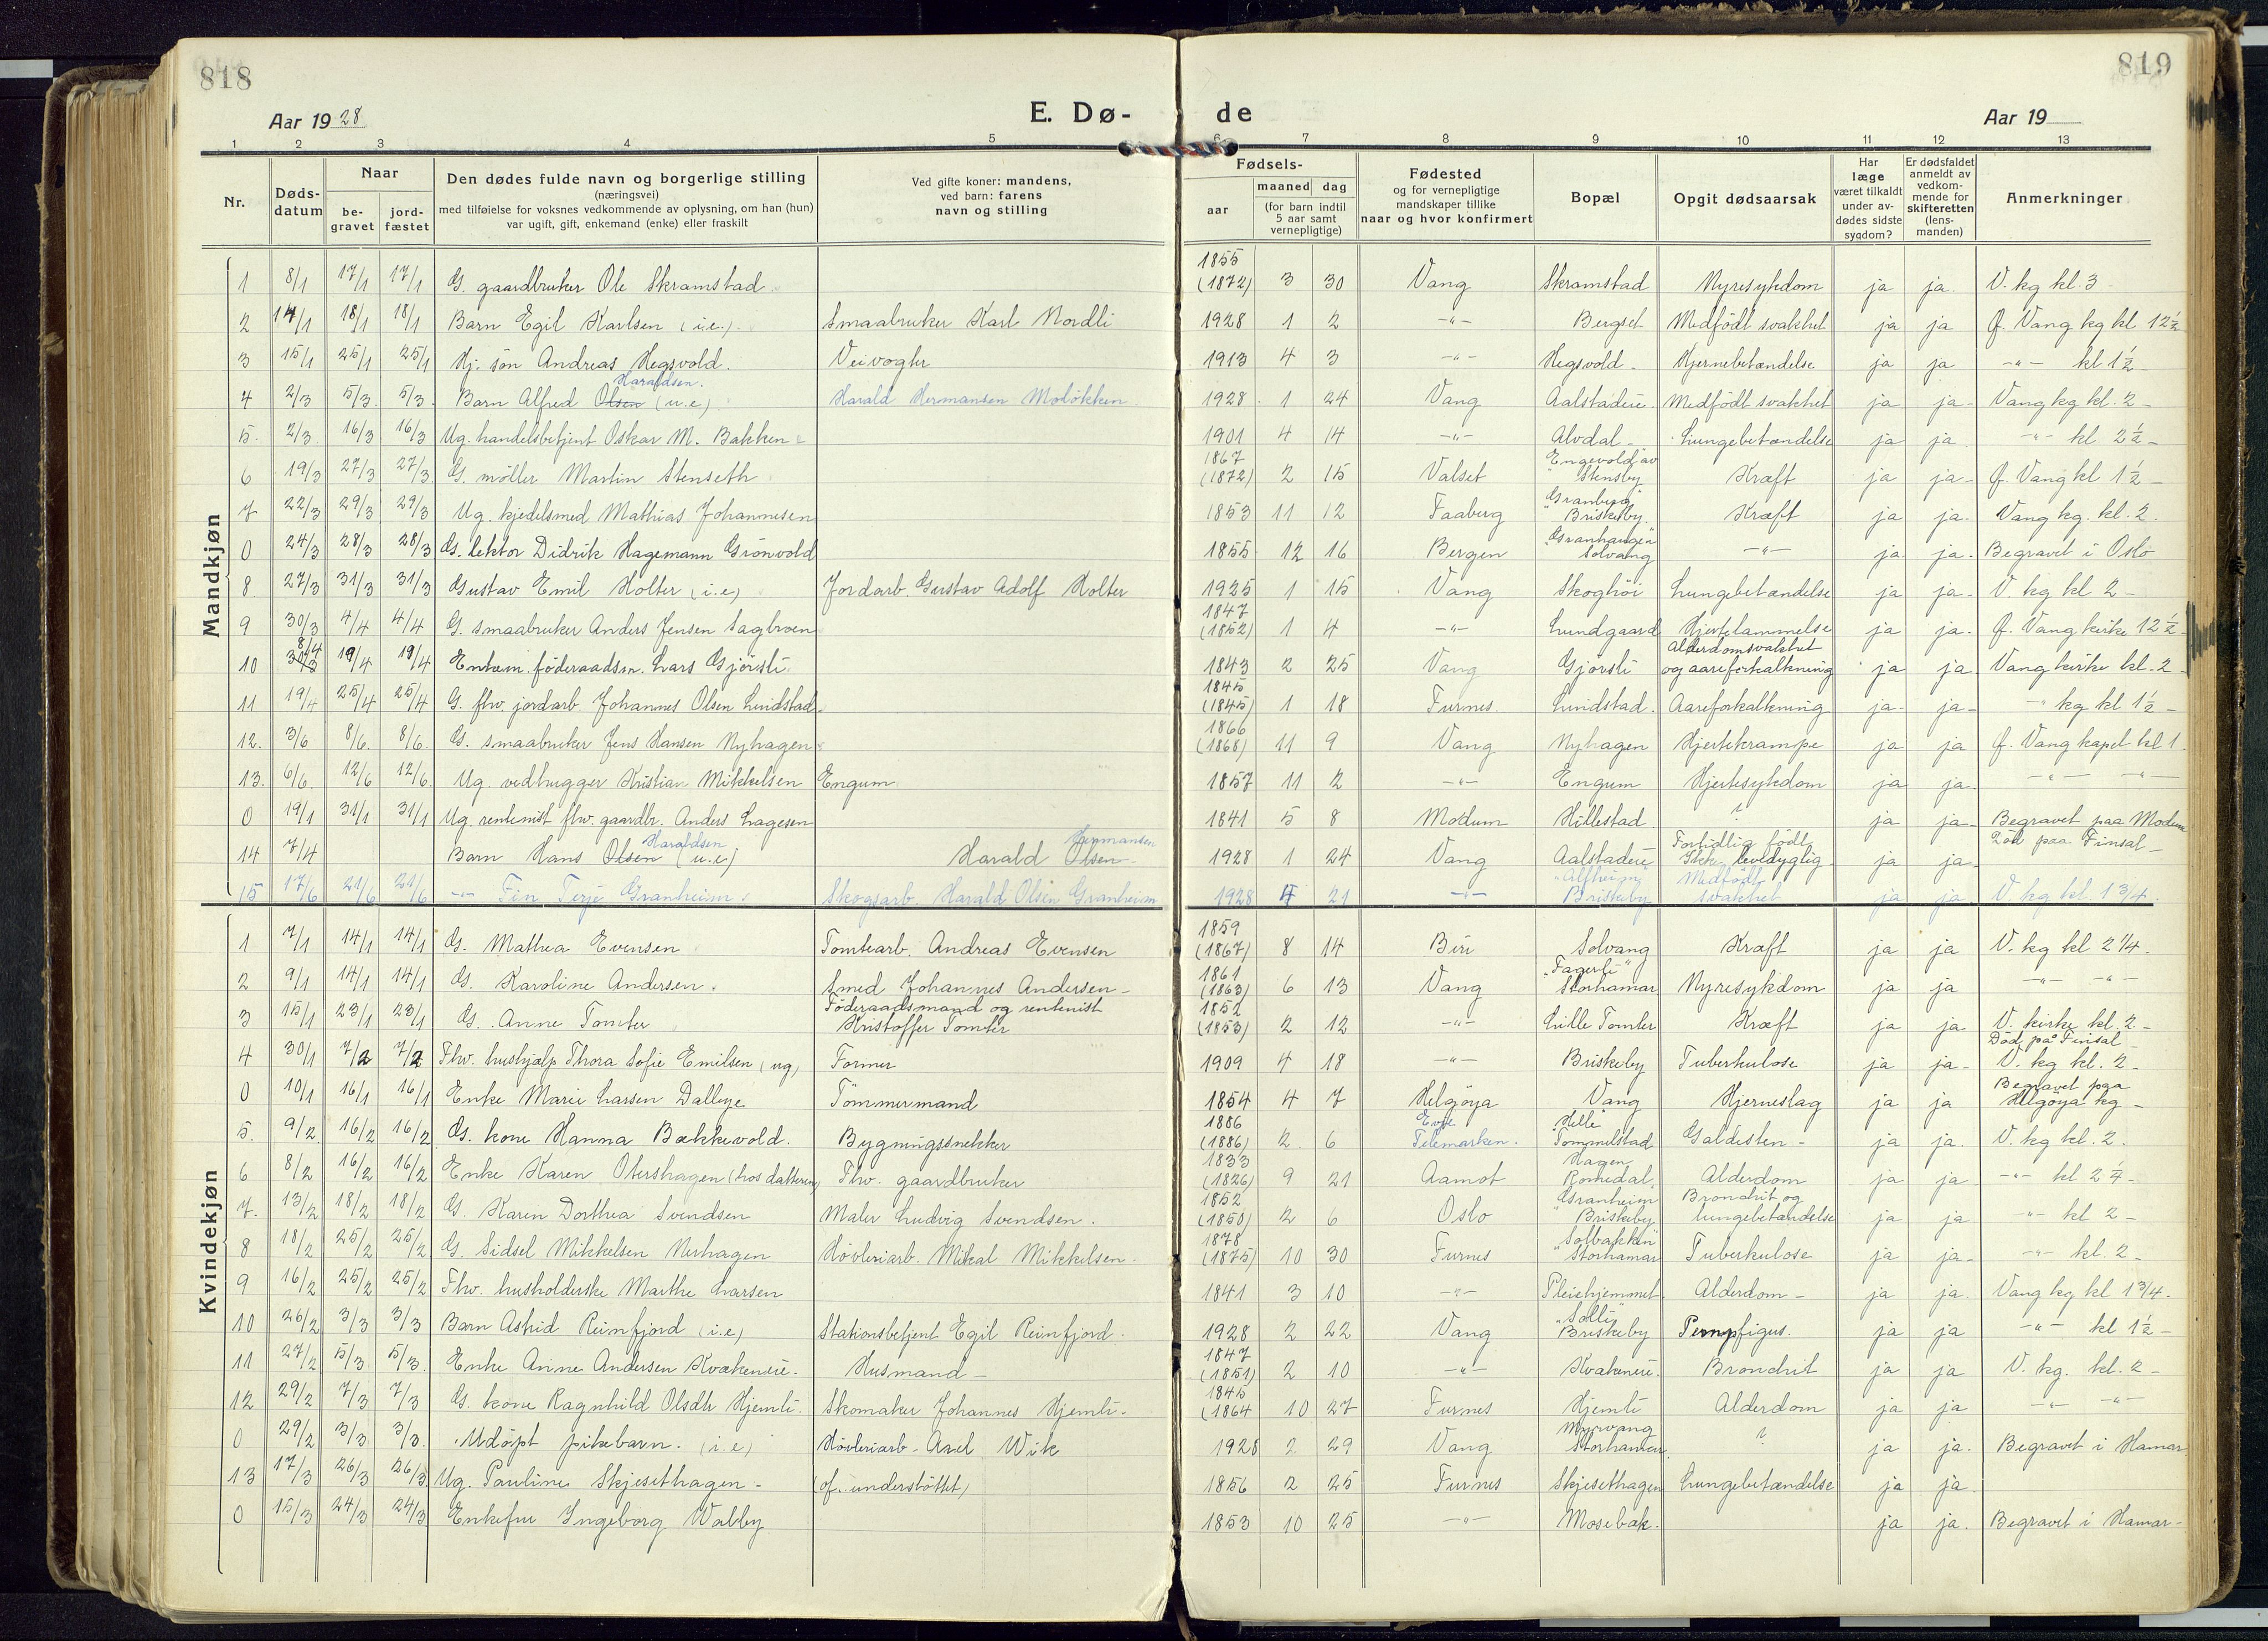 818
819
Aar 1928
E. Dø-
de
Aar 19
1 2 3 4 5 6 7 8 9 10 11 12 13
Nr.
Døds-datum
Naar
be-gravet
jord-fæstet
Den dødes fulde navn og borgerlige stilling
(næringsvei)
med tilføielse for voksnes vedkommende av oplysning, om han (hun)
var ugift, gift, enkemand (enke) eller fraskilt
Ved gifte koner: mandens,
ved barn: farens
navn og stilling
Fødsels-
aar
maaned dag
(for barn indtil
5 aar samt
vernepligtige)
Fødested
og for vernepligtige
mandskaper tillike
naar og hvor konfirmert
Bopæl
Opgit dødsaarsak
Har
læge
været tilkaldt
under av-
dødes sidste
sygdom?
Er dødsfaldet
anmeldt av
vedkom-
mende for
skifteretten
(lens-
manden)
Anmerkninger
Mandkjøn
1 8/1 17/1 17/1 G. gaardbruker Ole Skramstad 1855 (1872) 3 30 Vang Skramstad Nyresykdom ja ja. V. kg kl. 3
2 14/1 18/1 18/1 Barn Egil Karlsen (i.e.) Smaabruker Karl Nordli 1928 1 2 -"- Bergset Medfödt svakhet ja ja f. Vang kg kl 12½
3 15/1 25/1 25/1 Hj. søn Andreas Hegsvold. Veivogter 1913 4 3 -"- Hegsvold Hjernebetændelse ja ja -"- kl 1½
4 2/3 5/3 5/3 Barn Alfred Olsen Haraldsen. (u.e) Harald Hermansen Moløkken 1928 1 24 Vang Aalstadeie Medfödt svakhet ja ja Vang kg kl. 2
5. 2/3 16/3 16/3 Ug. handelsbetjent Oskar M. Bakken 1901 4 14 -"- Alvdal Lungebetændelse ja ja -"- kl 2½
6 19/3 27/3 27/3 G. møller Martin Stenseth 1867 (1872) 2 15 Valset Engevoldjav Stensby Kræft ja ja f. Vang kl 1½
7 22/3 29/3 29/3 Ug. kjedelsmed Mathias Johannesen 1853 11 12 Faaberg "Granberg" Briskeby Kræft ja ja Vang kg. kl. 2.
0 24/3 28/3 28/3 G. lektor Didrik Hagemann Grönvold 1855 12 16 Bergen "Granhaugen" Solvang -"- ja ja Begravet i Oslo
8 27/3 31/3 31/3 Gustav Emil Holter (i.e) Jordarb. Gustav Adolf Holter 1925 1 15 Vang Skoghöi Lungebetændelse ja ja V. kg kl 2
9 30/3 4/4 4/4 G. smaabruker Anders Jensen Sagbroen 1847 (1852) 1 4 -"- Lundgaard Hjertelammelse ja ja. f. Vang kirke 12½
10 8/4 19/4 19/4 Enkem. föderaadsm. Lars Gjörsli 1843 2 25 Vang Gjörsli Alderdomsvakhet og aareforkalkning ja ja Vang kirke kl. 2
11 19/4 25/4 25/4 G. fhv. jordarb. Johannes Olsen Lundstad 1845 (1845) 1 18 Furnes. Lindstad. Aareforkalkning ja ja -"- kg kl 1½
12. 3/6 8/6 8/6 G. smaabruker Jens Hansen Nyhagen 1866 (1868) 11 9 Vang Nyhagen Hjertekrampe ja ja f. Vang kapel kl 1
13. 6/6 12/6 12/6 Ug. vedhugger Kristian Mikkelsen Engum 1857 11 2 -"- Engum Hjertesykdom ja ja. -"- -"-
0 19/1 31/1 31/1 Ug. rentenist fhv. gaardbr. Anders Lagesen 1841 5 8 Modum Hillestad ? ja ja Begravet paa Modum
14 7/4 Barn Hans Olsen Haraldsen (u.e) Harald Olsen Hermansen 1928 1 24 Vang Aalstadeie Fortidlig födt Ikke levedygtig ja ja Död paa Finsal
15 17/6 21/6 21/6 -"- Fin Terje Granheim. Skogsarb. Harald Olsen Granheim 1928 4 21 -"- "Alfheim" Briskeby Medfödt svakhet ja ja V kg kl 1 3/4.
Kvindekjøn
1 7/1 14/1 14/1 G. Mathea Evensen Tomtearb. Andreas Evensen 1859 (1867) 8 14 Biri Solvang Kræft ja ja V. kg kl 2 1/4.
2 9/1 14/1 14/1 G. Karoline Andersen. Smed Johannes Andersen 1861 (1863) 6 13 Vang "Fagerli" Storhamar Nyresykdom ja ja -"- -"-
3 15/1 23/1 23/1 G. Anne Tomter Föderaadsmand og rentenist Kristoffer Tomter 1852 (1853) 2 12 -"- Lille Tomter Kræft ja ja V. kirke kl. 2
4 30/1 7/2 7/2 Fhv. hushjælp Thora Sofie Emilsen (ug) Former 1909 4 18 -"- Briskeby Tuberkulose ja ja Död på Finsal V. kg kl. 2
0 10/1 16/1 16/1 Enke Marie Larsen Dalbye Tömmermand 1854 4 7 Helgöya Vang Hjerneslag ja ja Begravet paa Helgöya kg
5. 9/2 16/2 16/2 G. kone Hanna Bækkevold. Bygningssnekker 1886 (1886) 2 6 Telemarken. Helli Tommelstad Galdesten ja ja. V. kg kl. 2.
6 8/2 16/2 16/2 Enke Karen Olershagen (hos datteren) Fhv. gaardbruker 1833 (1826) 9 21 Aamot Hagen Romedal Alderdom ja ja -"- kl 2¼
7. 13/2 18/2 18/2 G. Karen Dorthea Svendsen Maler Ludvig Svendsen. 1852 (1850) 2 6 Oslo "Granheim" Briskeby Bronchit og lungebetændelse ja ja -"- kl 2
8 18/2 25/2 25/2 G. Sidsel Mikkelsen Nerhagen Høvleriarb. Mikal Mikkelsen. 1878 (1875) 10 30 Furnes "Solbakken" Storhamar Tuberkulose ja ja -"- kl. 2
9 16/2 25/2 25/2 Fhv. husholderske Marthe Larsen 1841 3 10 -"- Pleiehjemmet Alderdom ja ja. Vang kg kl 1 3/4.
10 26/2 3/3 3/3 Barn Astrid Reinfjord (i.e) Stationsbetjent Egil Reinfjord. 1928 2 22 Vang "Solli" Briskeby Pempfigus. ja ja -"- kl 1½
11 27/2 5/3 5/3 Enke Anne Andersen Kvækeneie. Husmand 1847 (1851) 2 10 -"- Kvækeneie. Bronchit ja ja V. kg. kl. 2
12 29/2 7/3 7/3 G. kone Ragnhild Olsdtr Hjemli. Skomaker Johannes Hjemli. 1845 (1864 10 27 Furnes Hjemli Alderdom ja ja -"- -"-
0 29/2 3/3 3/3. Udöpt pikebarn. (i.e) Høvleriarb. Axel Wik 1928 2 29 Vang Myrvang Storhamar ? ja ja. Begravet i Hamar
13 17/3 26/3 26/3 Ug. Pauline Skjesethagen (of. understöttet) 1856 2 25 Furnes Skjesethagen Lungebetændelse ja ja.
0 15/3 24/3 24/3 Enkefru Ingeborg Walby 1853 10 25 -"- Mosebæk. ja ja. Begravet i Hamar